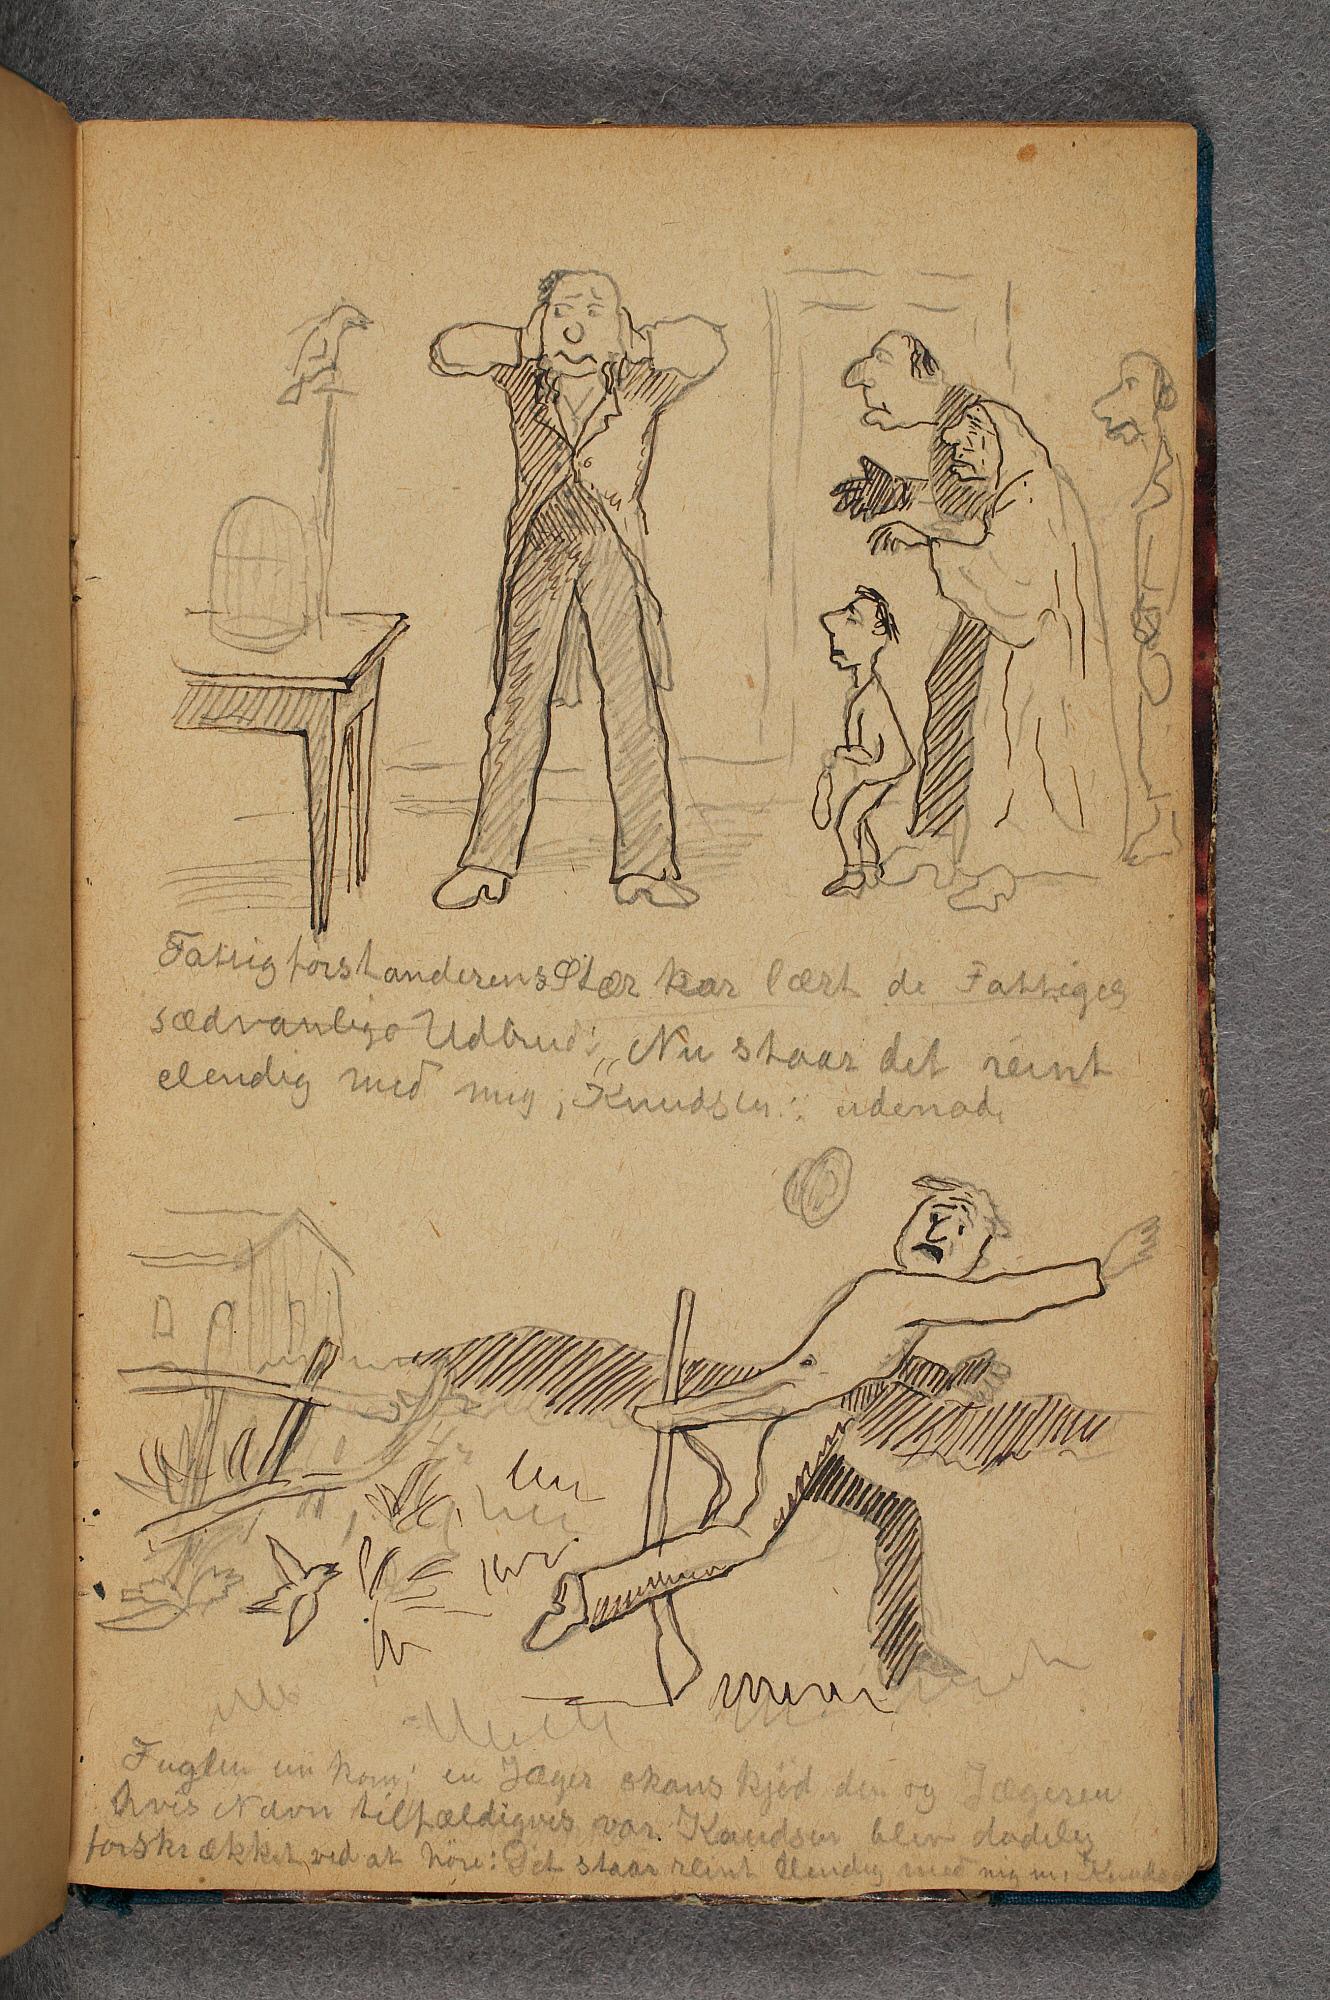 Fattigforstanderens Stær har lært de Fattiges
sædvanlige Udbrud: „Nu staar det reint
elendig med mig, Knudsen: udenad.
Fuglen kom; en Jæger skjöd den og Jægeren
hvis Navn tilfældigvis var Knudsen blev dödelig
forskrækket ved at höre: Det staar reint elendig med mig